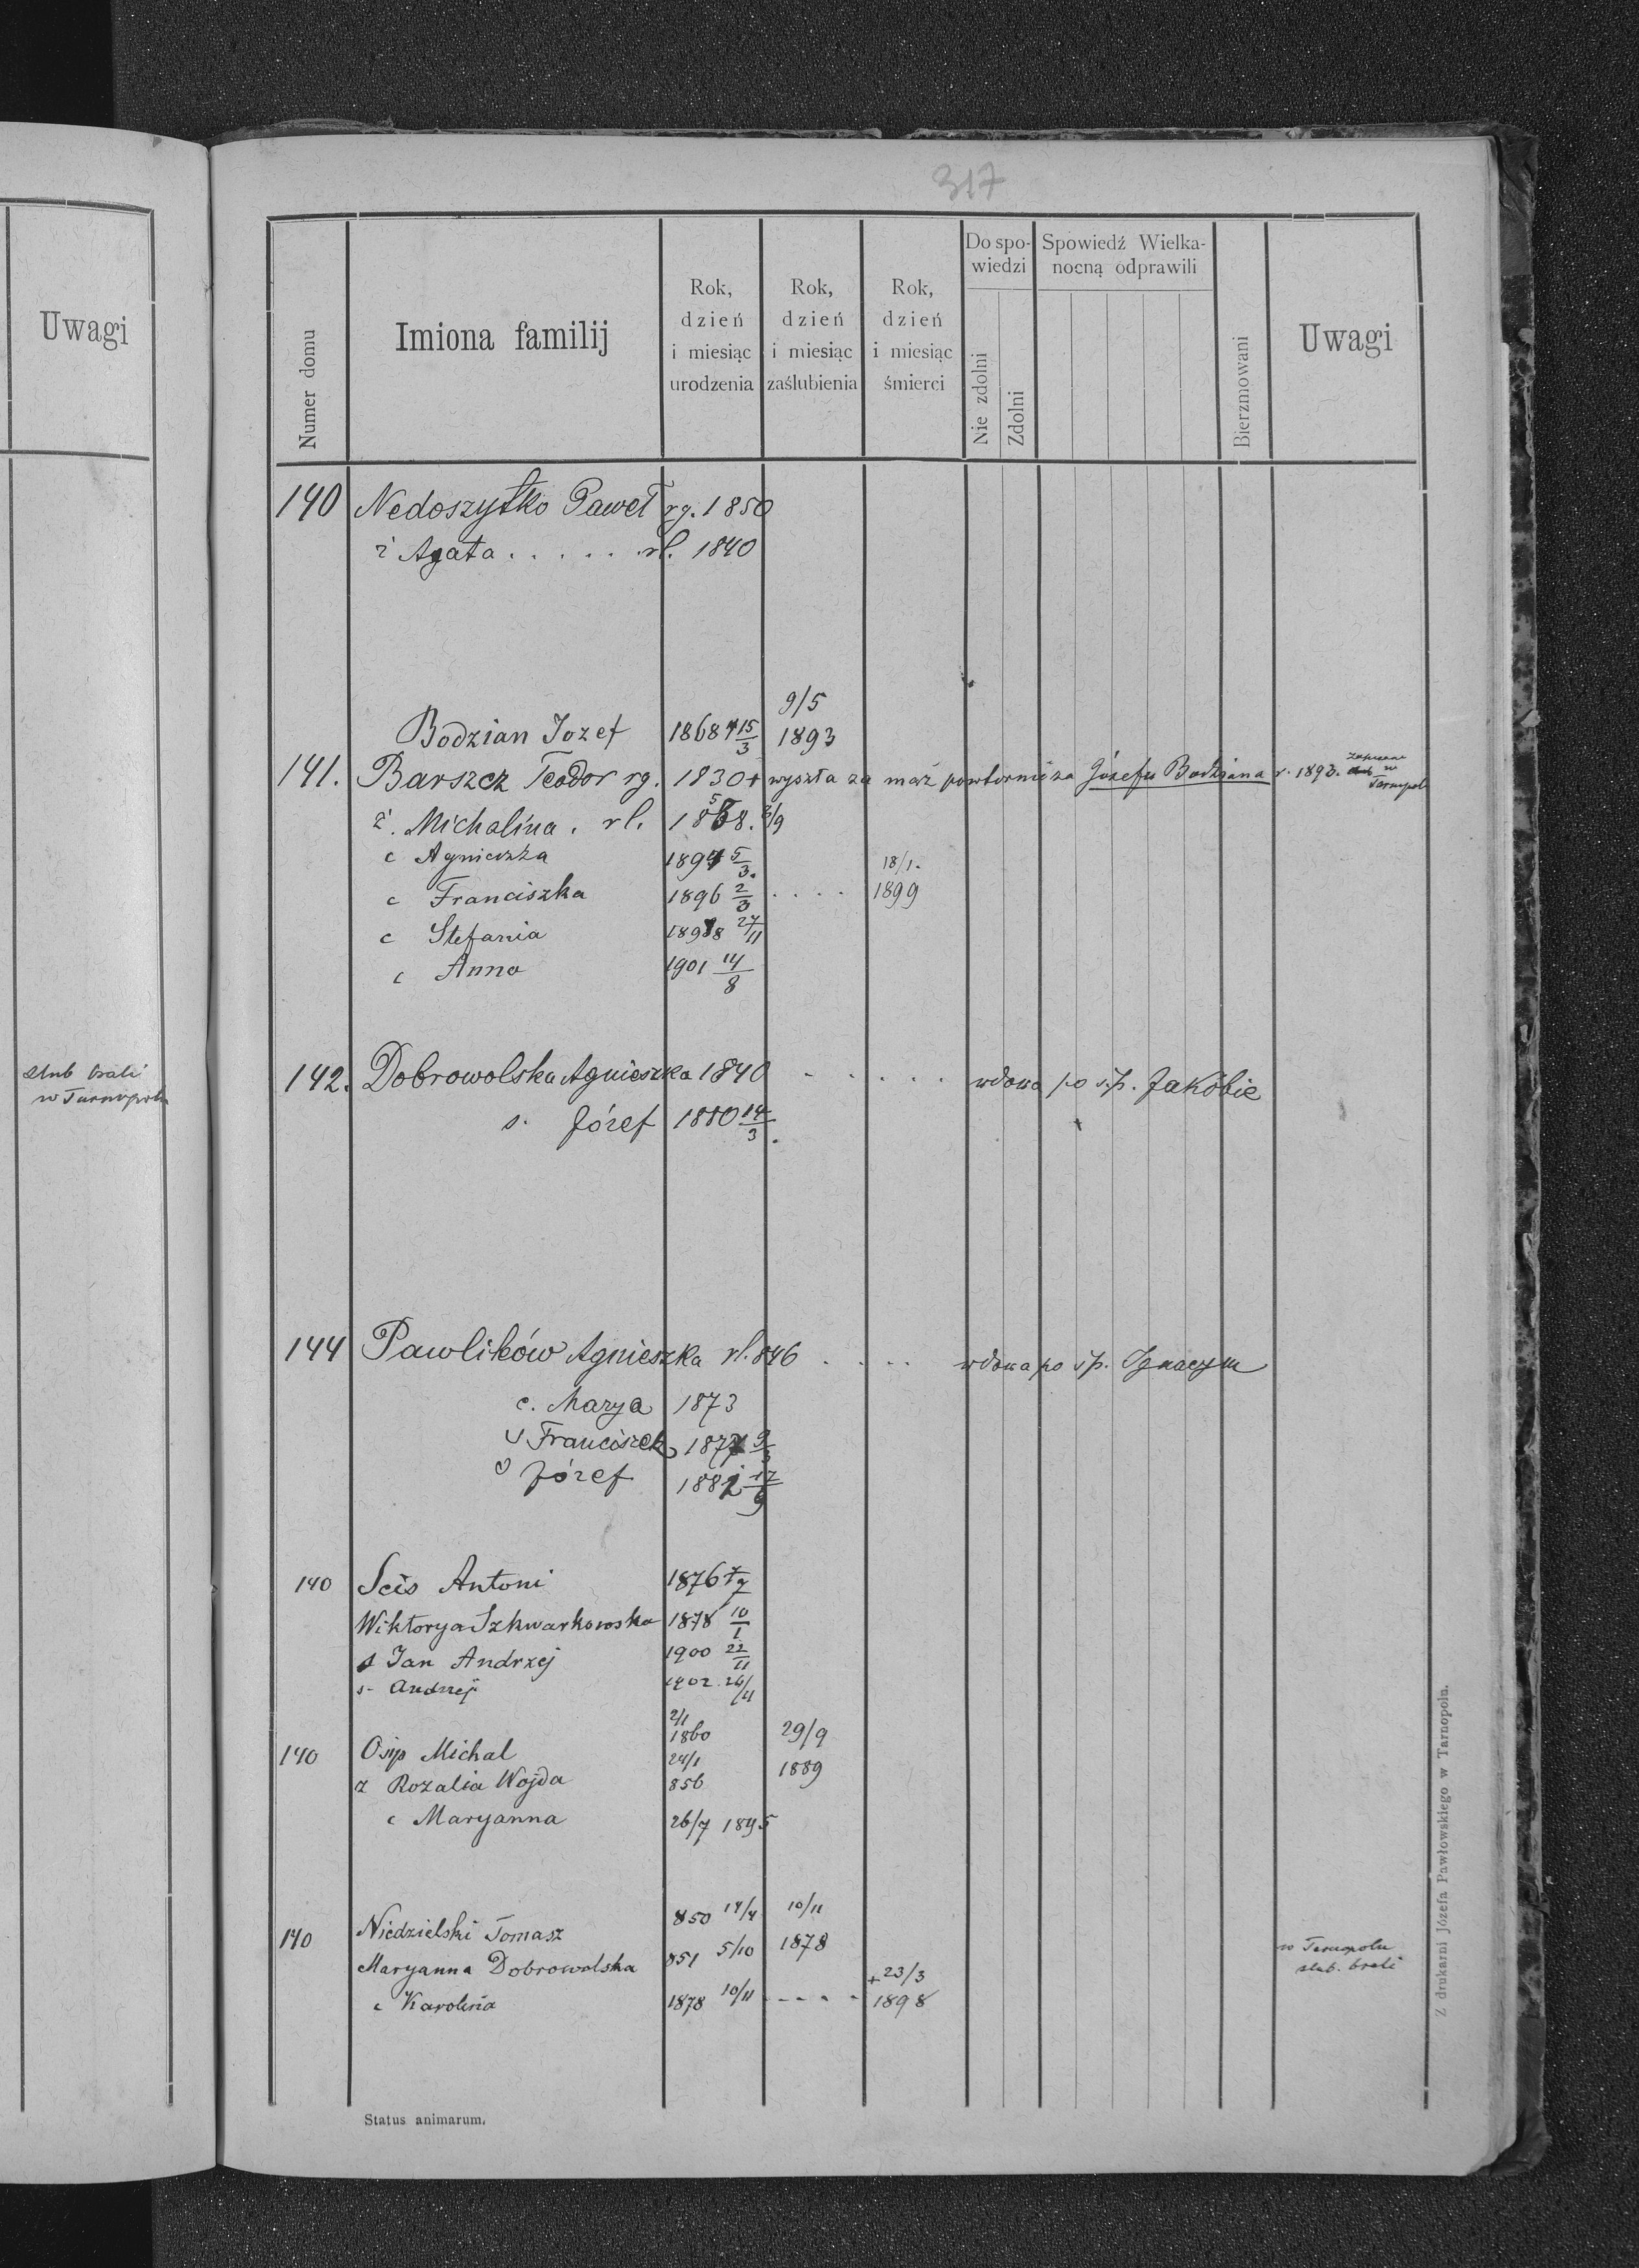 317
Uwagi
Numer domu
Imiona familij
Rok, dzień i miesiąc urodzenia
Rok, dzień i miesiąc zaślubienia
Rok, dzień i miesiąc śmierci
Do spowiedzi
Nie zdolni
Zdolni
Spowiedź Wielkanocną odprawili
Bierzmowani
Uwagi
140 Nedoszytko Paweł rg. 1850
ż Agata . . . . . . rl. 1840
9/5
Bodzian Jozef 1868 15/3 1893
141. Barszcz Teodor rg. 1830 + wyszła za mąż powtórnie za Józefa Bodziana r. 1893. w Tarnopolu
ż. Michalina . rl. 1858. 2/9
c Agnieszka 1894 5/3. 18/1.
c Franciszka 1896 2/3 . . . . 1899
c Stefania 1898 27/11
c Anna 1901 14/8
ślub brali
w Tarnopolu
142. Dobrowolska Agnieszka 1840 . . . . . wdowa po ś.p. Jakóbie
s. Józef 1880 14/3.
144 Pawlików Agnieszka rl. 846 . . . . wdowa po śp. Ignacym
c. Marya 1873
s Franciszek 1877
s Józef 1882 17/9
140 Scis Antoni 1876
Wiktorya Szkwarkowska 1878 10/1
s Jan Andrzej 1900 22/11
s- Andrzej 1902 24/11
2/1
140 Osip Michal 1860 29/9
24/1
ż Rozalia Wojda 856 1889
c Maryanna 26/7 1895
140 Niedzielski Tomasz 850 14/4 10/11
Maryanna Dobrowolska 851 5/10 1878 w Tarnopolu ślub. brali
+ 23/3
c Karolina 1878 10/11 - - - - 1898
Status animarum.
Z drukarni Józefa Pawłowskiego w Tarnopolu.